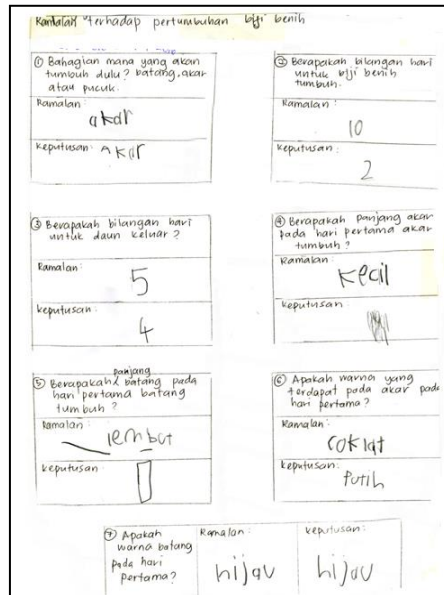 Ramalan terhadap pertumbuhan biji benih
① Bahagian mana yang akan
tumbuh dulu? batang, akar
atau pucuk.
Ramalan:
akar
Keputusan: Akar
② Berapakah bilangan hari
untuk biji benih
tumbuh.
Ramalan:
10
Keputusan:
2
③ Berapakah bilangan hari
untuk daun keluar?
Ramalan:
5
Keputusan:
4
④ Berapakah panjang akar
pada hari pertama akar
tumbuh?
Ramalan:
Kecil
Keputusan:
panjang
⑤ Berapakah batang pada
hari pertama batang
tumbuh?
Ramalan:
lembut
Keputusan
⑥ Apakah warna yang
terdapat pada akar pada
hari pertama?
Ramalan:
coklat
Keputusan:
Putih
⑦ Apakah
warna batang
pada hari
pertama?
Ramalan:
hijau
Keputusan:
hijau